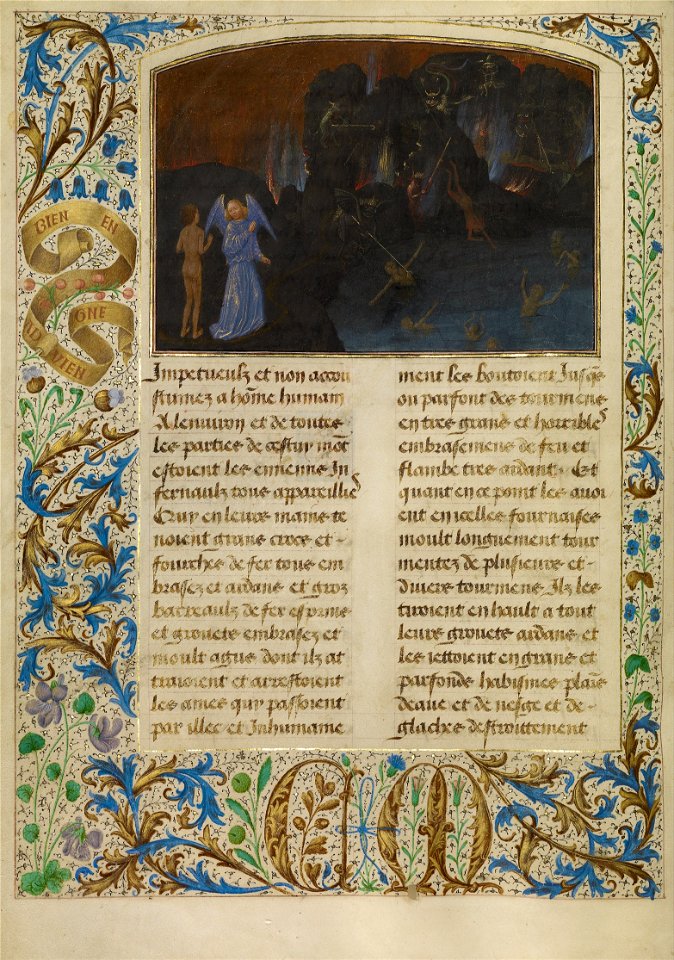 BIEN EN
AD VIEN
GNE
Impetueulz et non accou
stumez a home humain
A lenuiron et de toutes
les parties de cestui mot
estoient les ennemis In
fernaulz tous appareillies
Quy en leurs mains te
noient grans crocs et
fourches de fer tous em
brasez et ardans et gros
barreaulz de fer esprins
et grouets embrasez et
moult agus dont ilz at
traioient et arrestoient
les ames quy passoient
par illec et Inhumaine
ment les boutoient Jusqes
ou parfont des tourmens
en tres grans et horribles
embrasemens de feu et
flambe tres ardant. Et
quant en ce point les auoi
ent en icelles fournaises
moult longuement tour
mentez de plusieurs et
diuers tourmens Ilz les
tiroient en hault a tout
leurs grouets ardans et
les iettoient en grans et
parfonds habismes plains
deaue et de neige et de
glaches destroittement
C M